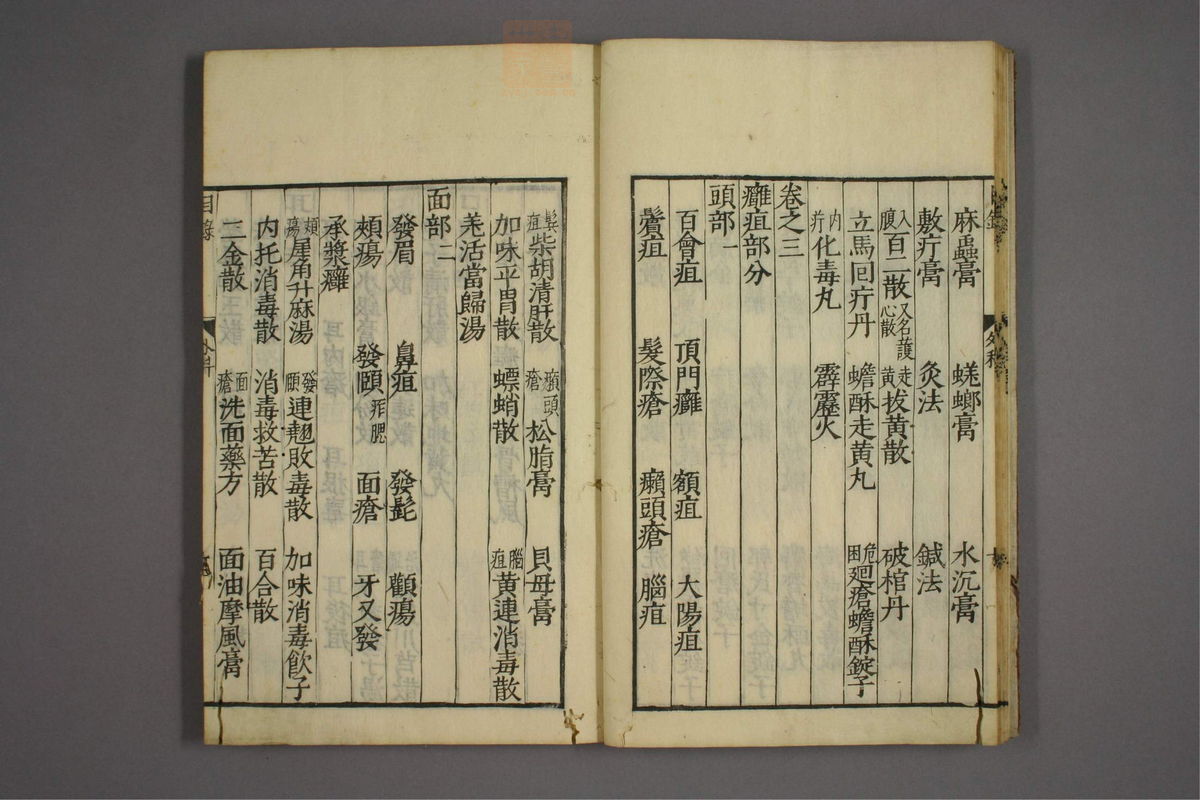 麻蟲膏 蜣螂膏 水沉膏
敷疔膏 灸法 鍼法
入腹百二散又名護心散 走黃拔黃散 破棺丹
立馬回疔丹 蟾酥走黃丸 危困廻瘡蟾酥錠子
內疔化毒丸 霹靂火
卷之三
癰疽部分
頭部一
百會疽 頂門癰 額疽 大陽疽
鬢疽 髮際瘡 癩頭瘡 腦疽
鬢疽柴胡清肝散 癩頭瘡松脂膏 貝母膏
加味平胃散 螵蛸散 腦疽黃連消毒散
羌活當歸湯
面部二
發眉 鼻疽 發髭 顴瘍
頰瘍 發頤 面瘡 牙叉發
承漿癰
頰瘍犀角升麻湯 發頤連翹敗毒散 加味消毒飲子
內托消毒散 消毒救苦散 百合散
三金散 面瘡洗面藥方 面油摩風膏
目錄
外科